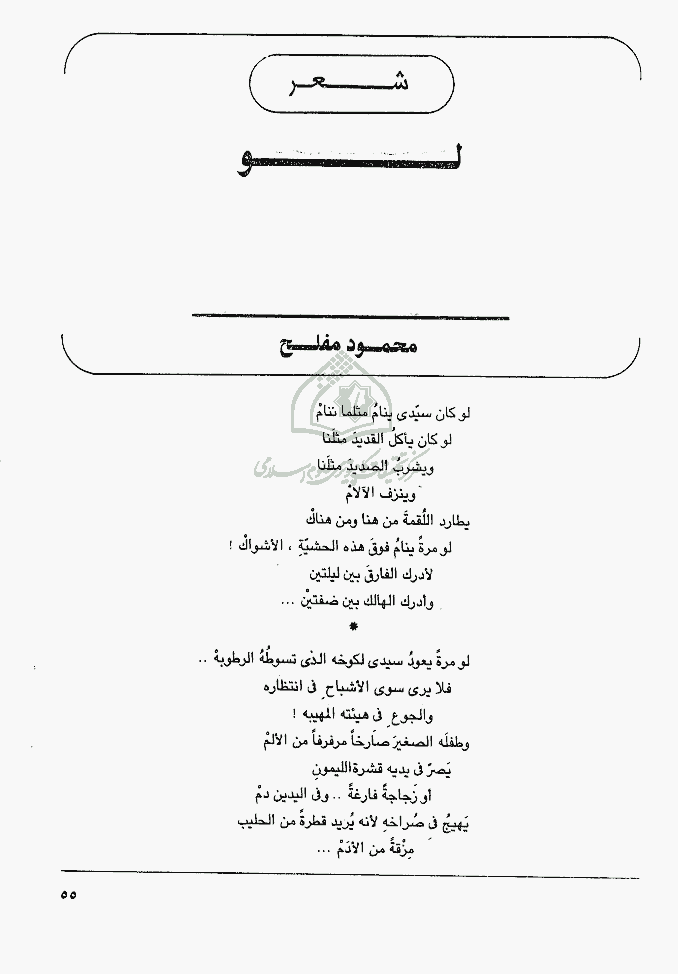 شعر
لو
محمود مفلح
لو كان سيّدى ينامُ مثلما ننامْ
لو كان يأكلُ القديدَ مثلَنا
ويشربُ الصديدَ مثلَنا
وينزف الآلامْ
يطارد اللُقمةَ من هنا ومن هناكْ
لو مرةً ينامُ فوقَ هذه الحشيّةِ ، الأشواكْ !
لأدرك الفارقَ بين ليلتين
وأدرك الهالك بين ضفتيْن ...
*
لو مرةً يعودُ سيدى لكوخه الذى تسوطُهُ الرطوبهْ ..
فلا يرى سوى الأشباحِ فى انتظاره
والجوعِ فى هيئته المهيبه !
وطفلَه الصغيرَ صارخاً مرفرفاً من الألمْ
يَصرّ فى يديه قشرة الليمونِ
أو زجاجةً فارغةً .. وفى اليدين دمْ
يَهيجُ فى صُراخهِ لأنه يُريد قطرةً من الحليب
مِزْقةً من الأدَمْ ...
٥٥